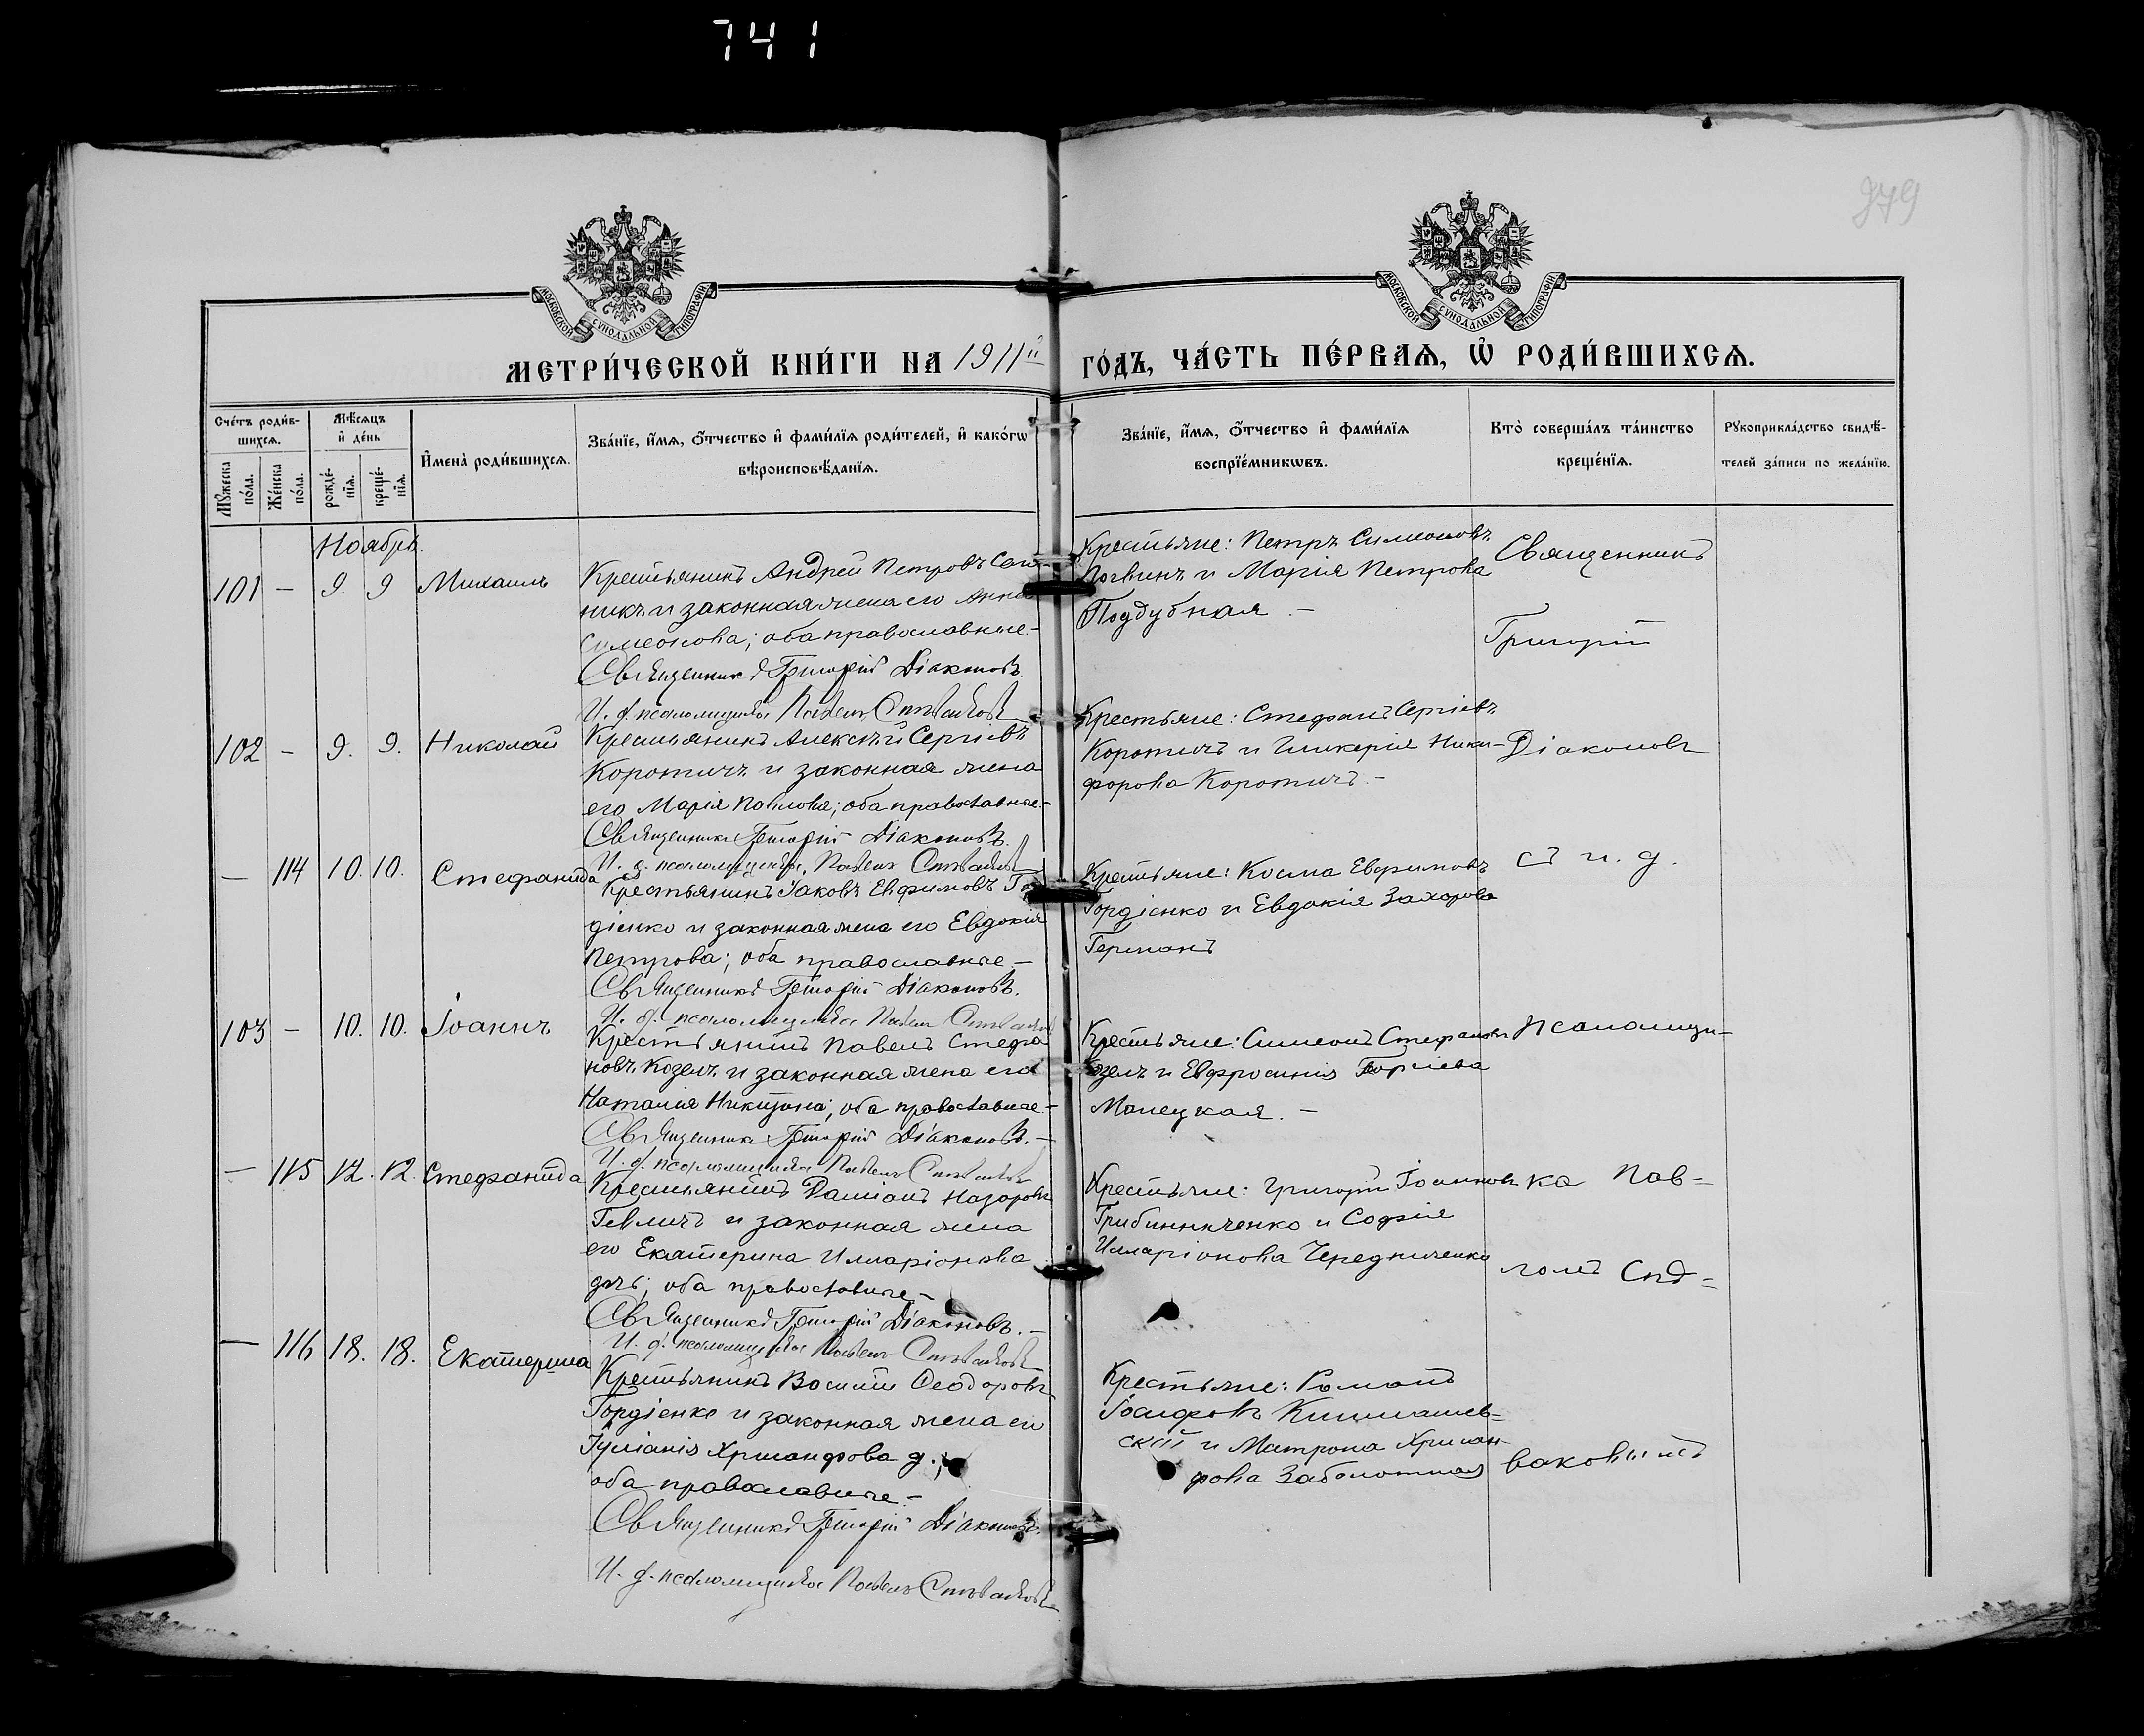 741
879
МОСКОВСКОЙ СѴНОДАЛЬНОЙ ТИПОГРАФІИ
МОСКОВСКОЙ СѴНОДАЛЬНОЙ ТИПОГРАФІИ
МЕТРИ́ЧЕСКОЙ КНИ́ГИ НА 1911й ГО́ДЪ, ЧА́СТЬ ПЕ́РВАѦ, Ѡ҆ РОДИ́ВШИХСѦ.
Сче́тъ роди́в-
шихсѧ.
Мꙋ́жеска по́ла.
Же́нска по́ла.
Мѣ́сѧцъ
и҆ де́нь
рожде́-
нїѧ.
креще́-
нїѧ.
И҆мена̀ роди́вшихсѧ.
Зва́нїе, и҆́мѧ, ѻ҆́тчество и҆ фами́лїѧ роди́телей, и҆ како́гѡ
вѣроисповѣ́данїѧ.
Зва́нїе, и҆́мѧ, ѻ҆́тчество и҆ фами́лїѧ
воспрїе́мникѡвъ.
Кто̀ соверша́лъ та́инство
креще́нїѧ.
Рꙋкоприкла́дство свидѣ́-
телей за́писи по жела́нїю.
Ноябрь.
101 — 9. 9 Михаилъ
Крестьянинъ Андрей Петровъ
никъ и законная жена его Анна
Симеонова; оба православные.-
Священникъ Григорій Діаконовъ.
И. д. псаломщика Павелъ
Крестьяне: Петръ Симеоновъ
и Марія Петрова
Поддубная. -
Священникъ
Григорій
102 — 9. 9. Николай
Крестьянинъ Алексѣй Сергіевъ
Коротичъ и законная жена
его Марія Павлова; оба православные.-
Священникъ Григорій Діаконовъ.
И. д. псаломщика Павелъ
Крестьяне: Стефанъ Сергіевъ
Коротичъ и Гликерія Ники-
форова Коротичъ. -
Діаконовъ
— 114 10. 10. Стефанида
Крестьянинъ Іаковъ Евфимовъ
діенко и законная жена его Евдокія
Петрова; оба православные —
Священникъ Григорій Діаконовъ.
И. д. псаломщика Павелъ
Крестьяне: Косма Евфимовъ
Гордіенко и Евдокія Захарова
Германъ
съ и. д.
103 — 10. 10. Іоаннъ
Крестьянинъ Павелъ Стефа
новъ Козелъ и законная жена его
Наталія Никитова; оба православные.-
Священникъ Григорій Діаконовъ. —
И. д. псаломщика Павелъ
Крестьяне: Симеонъ Стефановъ
Козелъ и Евфросинія Георгіева
Малецкая. -
Псаломщи-
— 115 12. 12. Стефанида
Крестьянинъ Даміанъ Назаровъ
и законная жена
его Екатерина Илларіонова
дчь; оба православные —
Священникъ Григорій Діаконовъ. —
И. д. псаломщика Павелъ
Крестьяне: Григорій Іоанновъ
Грибинниченко и Софія
Илларіонова Чередниченко
ка Пав=
ломъ
— 116 18. 18. Екатерина
Крестьянинъ Василій Ѳеодоровъ
Гордіенко и законная жена его
Іуліанія Хрисанфова д.;
оба православные. -
Священникъ Григорій Діаконовъ.
И. д. псаломщика Павелъ
Крестьяне: Романъ
Іосифовъ
скій и Матрона Хрисан-
фова Заболотная
ваковымъ